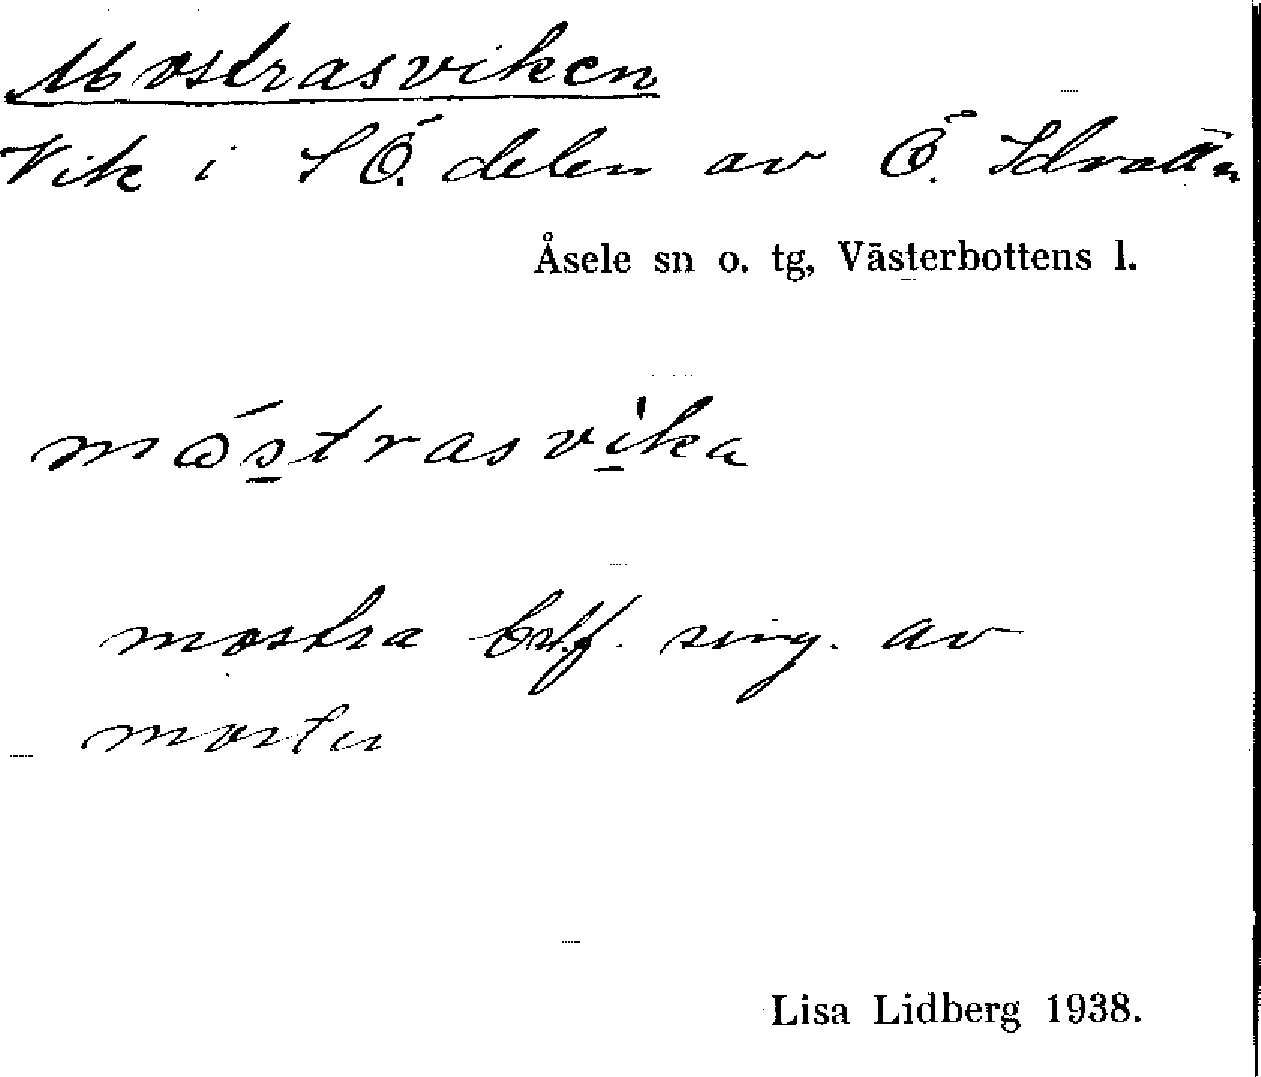 Mostrasviken
Vik i SÖ. delen av Ö. Idvattn
Åsele sn o. tg, Västerbottens l.
mostrasvika
mostra best.f. sing. av
moster
Lisa Lidberg 1938.